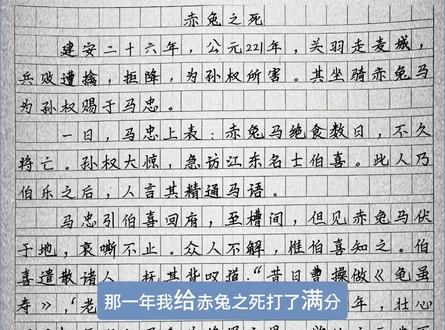 赤兔之死
建安二十六年，公元221年，关羽走麦城，
兵败遭擒，拒降，为孙权所害。其坐骑赤兔马
为孙权赐于马忠。
一日，马忠上表：赤兔马绝食数日，不久
将亡。孙权大惊，急访江东名士伯喜。此人乃
伯乐之后，人言其精通马语。
马忠引伯喜回府，至槽间，但见赤兔马伏
于地，哀嘶不止。众人不解，惟伯喜知之。伯
喜遣散诸人，抚其背叹道：“昔日曹操做《龟虽
寿》，‘老
年，壮心
那一年我给赤兔之死打了满分